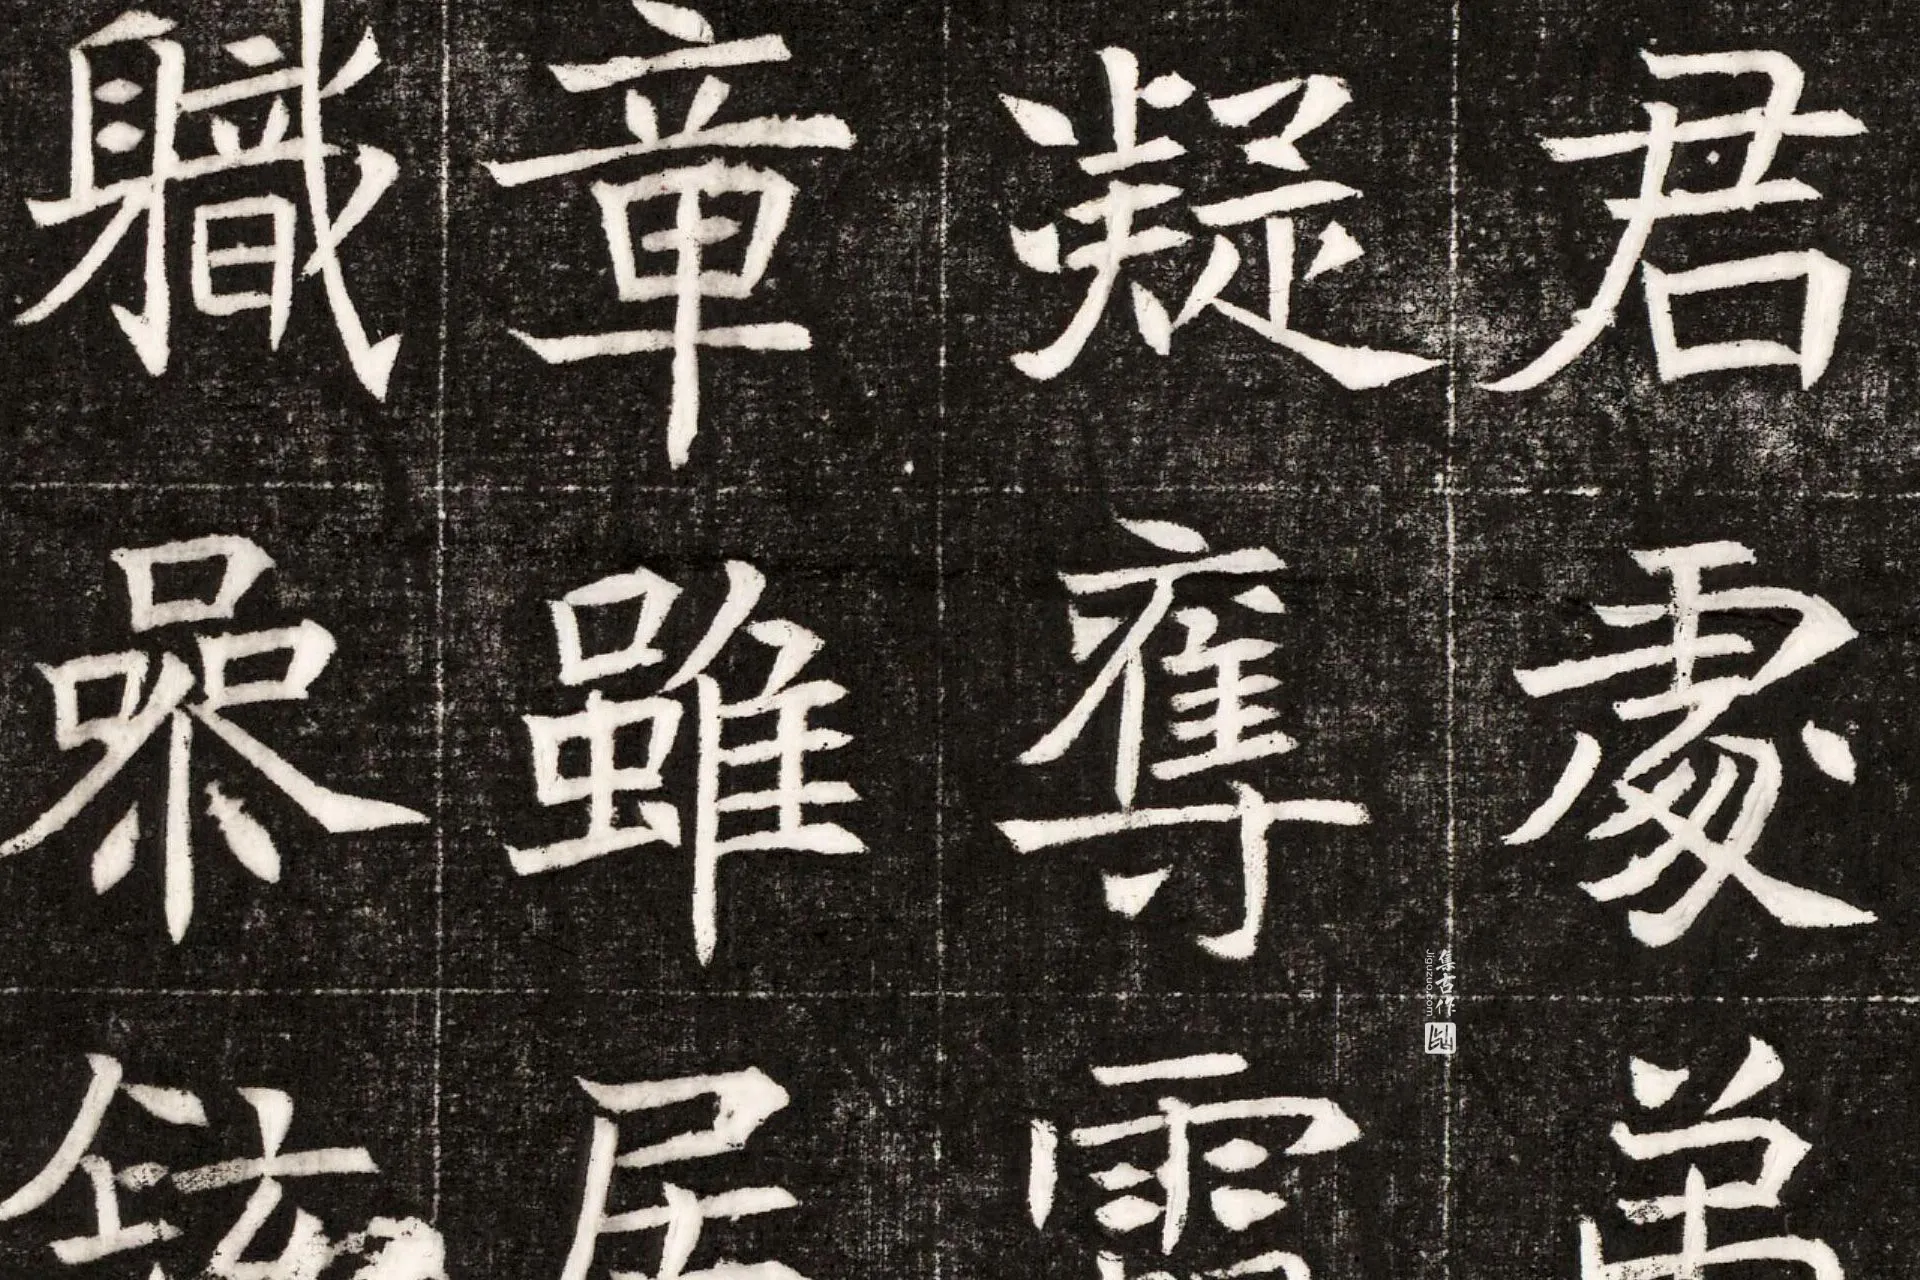 君處弟
凝奪
章雖居
職參
集古作
jiguzuo.com